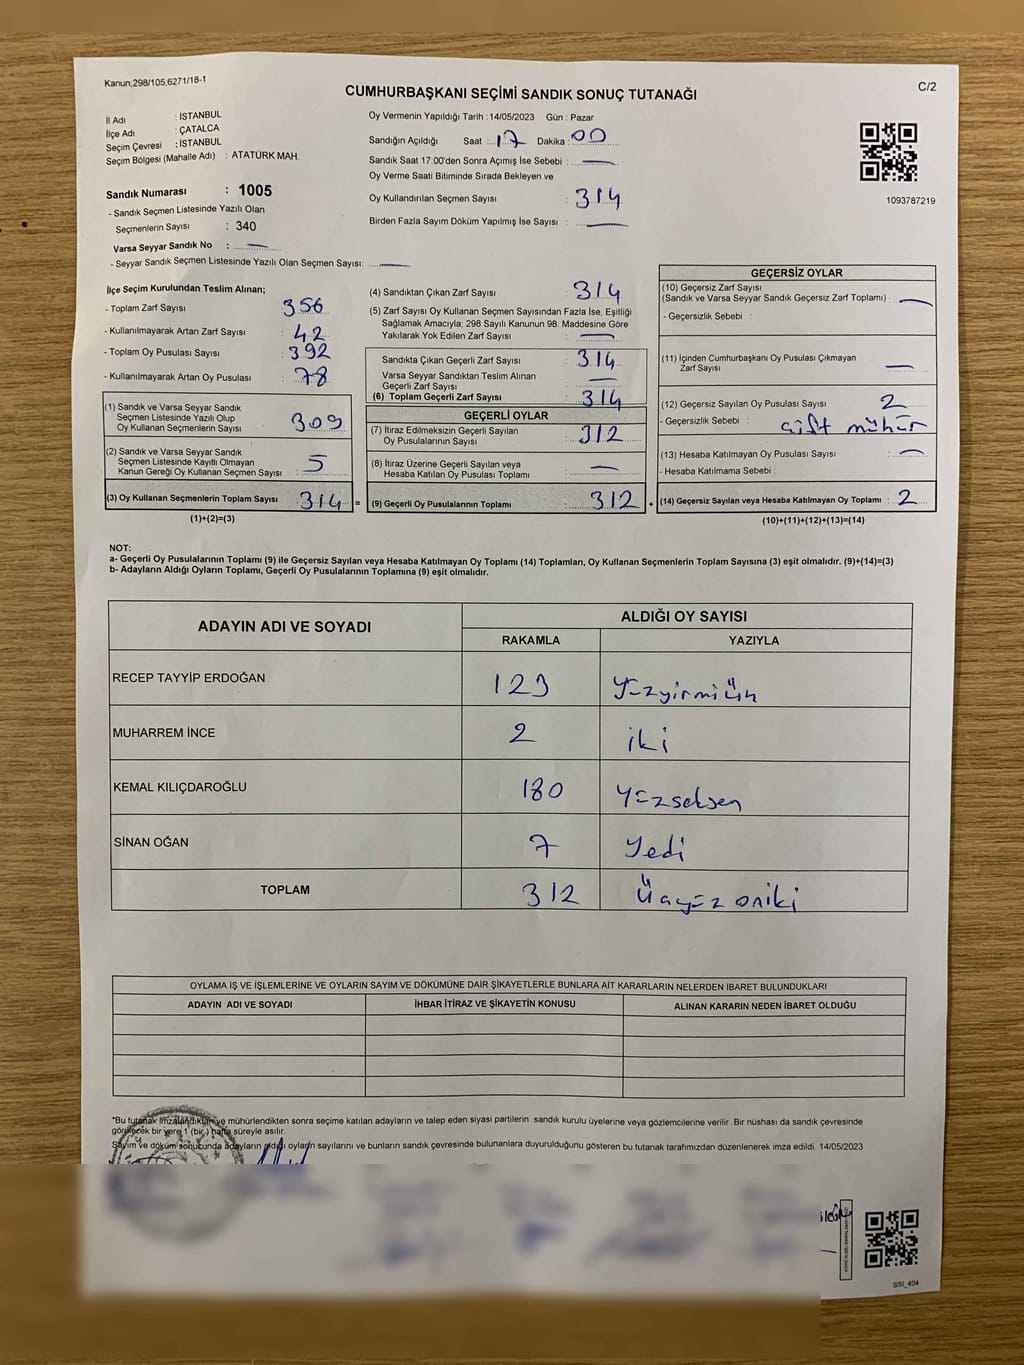 Kanun;298/105;6271/18-1
C/2
CUMHURBAŞKANI SEÇİMİ SANDIK SONUÇ TUTANAĞI
İl Adı : İSTANBUL
İlçe Adı : ÇATALCA
Seçim Çevresi : İSTANBUL
Seçim Bölgesi (Mahalle Adı) : ATATÜRK MAH.
Sandık Numarası : 1005
- Sandık Seçmen Listesinde Yazılı Olan
Seçmenlerin Sayısı : 340
Varsa Seyyar Sandık No :
- Seyyar Sandık Seçmen Listesinde Yazılı Olan Seçmen Sayısı:
Oy Vermenin Yapıldığı Tarih : 14/05/2023 Gün : Pazar
Sandığın Açıldığı Saat : 17 Dakika : 00
Sandık Saat 17:00'den Sonra Açımış İse Sebebi :
Oy Verme Saati Bitiminde Sırada Bekleyen ve
Oy Kullandırılan Seçmen Sayısı : 314
Birden Fazla Sayım Döküm Yapılmış İse Sayısı :
1093787219
İlçe Seçim Kurulundan Teslim Alınan;
- Toplam Zarf Sayısı : 356
- Kullanılmayarak Artan Zarf Sayısı : 42
- Toplam Oy Pusulası Sayısı : 392
- Kullanılmayarak Artan Oy Pusulası : 78
(1) Sandık ve Varsa Seyyar Sandık
Seçmen Listesinde Yazılı Olup
Oy Kullanan Seçmenlerin Sayısı : 309
(2) Sandık ve Varsa Seyyar Sandık
Seçmen Listesinde Kayıtlı Olmayan
Kanun Gereği Oy Kullanan Seçmen Sayısı : 5
(3) Oy Kullanan Seçmenlerin Toplam Sayısı : 314 =
(1)+(2)=(3)
(4) Sandıktan Çıkan Zarf Sayısı : 314
(5) Zarf Sayısı Oy Kullanan Seçmen Sayısından Fazla İse, Eşitliği
Sağlamak Amacıyla; 298 Sayılı Kanunun 98. Maddesine Göre
Yakılarak Yok Edilen Zarf Sayısı :
Sandıkta Çıkan Geçerli Zarf Sayısı : 314
Varsa Seyyar Sandıktan Teslim Alınan
Geçerli Zarf Sayısı :
(6) Toplam Geçerli Zarf Sayısı : 314
GEÇERLİ OYLAR
(7) İtiraz Edilmeksizin Geçerli Sayılan
Oy Pusulalarının Sayısı : 312
(8) İtiraz Üzerine Geçerli Sayılan veya
Hesaba Katılan Oy Pusulası Toplamı :
(9) Geçerli Oy Pusulalarının Toplamı : 312 +
GEÇERSİZ OYLAR
(10) Geçersiz Zarf Sayısı
(Sandık ve Varsa Seyyar Sandık Geçersiz Zarf Toplamı) :
- Geçersizlik Sebebi :
(11) İçinden Cumhurbaşkanı Oy Pusulası Çıkmayan
Zarf Sayısı :
(12) Geçersiz Sayılan Oy Pusulası Sayısı : 2
- Geçersizlik Sebebi : çift mühür
(13) Hesaba Katılmayan Oy Pusulası Sayısı :
- Hesaba Katılmama Sebebi :
(14) Geçersiz Sayılan veya Hesaba Katılmayan Oy Toplamı : 2
(10)+(11)+(12)+(13)=(14)
NOT:
a- Geçerli Oy Pusulalarının Toplamı (9) ile Geçersiz Sayılan veya Hesaba Katılmayan Oy Toplamı (14) Toplamları, Oy Kullanan Seçmenlerin Toplam Sayısına (3) eşit olmalıdır. (9)+(14)=(3)
b- Adayların Aldığı Oyların Toplamı, Geçerli Oy Pusulalarının Toplamına (9) eşit olmalıdır.
ADAYIN ADI VE SOYADI
ALDIĞI OY SAYISI
RAKAMLA YAZIYLA
RECEP TAYYİP ERDOĞAN 123 Yüzyirmiüç
MUHARREM İNCE 2 iki
KEMAL KILIÇDAROĞLU 180 Yüzseksen
SİNAN OĞAN 7 Yedi
TOPLAM 312 Üçyüz oniki
OYLAMA İŞ VE İŞLEMLERİNE VE OYLARIN SAYIM VE DÖKÜMÜNE DAİR ŞİKAYETLERLE BUNLARA AİT KARARLARIN NELERDEN İBARET BULUNDUKLARI
ADAYIN ADI VE SOYADI İHBAR İTİRAZ VE ŞİKAYETİN KONUSU ALINAN KARARIN NEDEN İBARET OLDUĞU
*Bu tutanak imzalandıktan ve mühürlendikten sonra seçime katılan adayların ve talep eden siyasi partilerin sandık kurulu üyelerine veya gözlemcilerine verilir. Bir nüshası da sandık çevresinde
görülecek bir yere 1 (bir) hafta süreyle asılır.
Sayım ve döküm sonucunda adayların aldığı oyların sayılarını ve bunların sandık çevresinde bulunanlara duyurulduğunu gösteren bu tutanak tarafımızdan düzenlenerek imza edildi. 14/05/2023
SSI_404